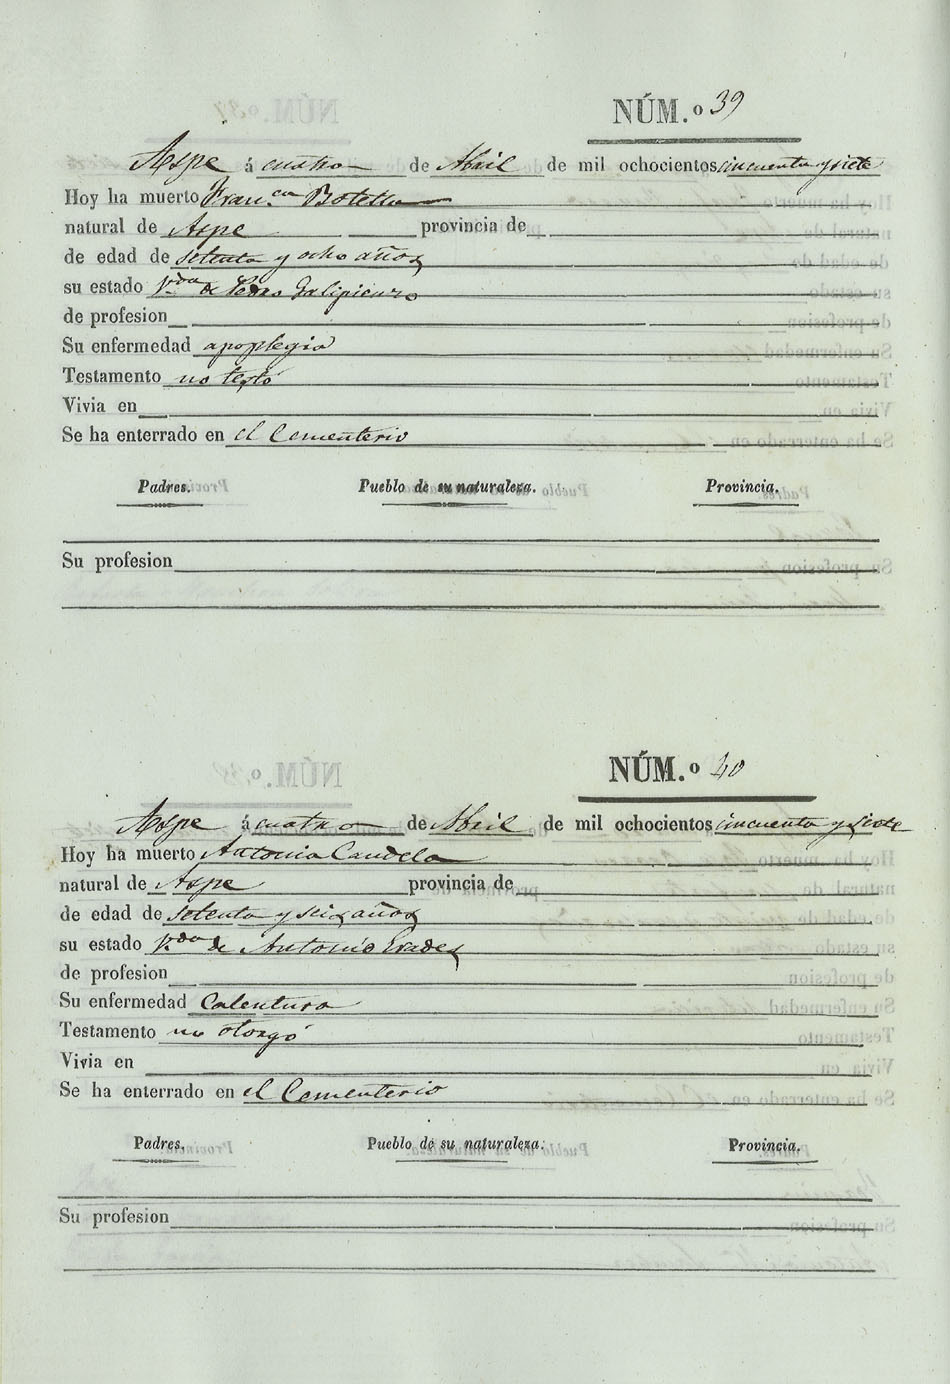 NÚM.o 39
Aspe á cuatro de Abril de mil ochocientos cincuenta y siete
Hoy ha muerto Fran.ca Botella
natural de Aspe provincia de
de edad de setenta y ocho años
su estado V.da de Pedro Galipienzo
de profesion
Su enfermedad apoplegia
Testamento no testó
Vivia en
Se ha enterrado en el Cementerio
Padres. Pueblo de su naturaleza. Provincia.
Su profesion
NÚM.o 40
Aspe á cuatro de Abril de mil ochocientos cincuenta y siete
Hoy ha muerto Antonia Candela
natural de Aspe provincia de
de edad de setenta y seis años
su estado V.da de Antonio Erades
de profesion
Su enfermedad Calentura
Testamento no otorgó
Vivia en
Se ha enterrado en el Cementerio
Padres. Pueblo de su naturaleza. Provincia.
Su profesion